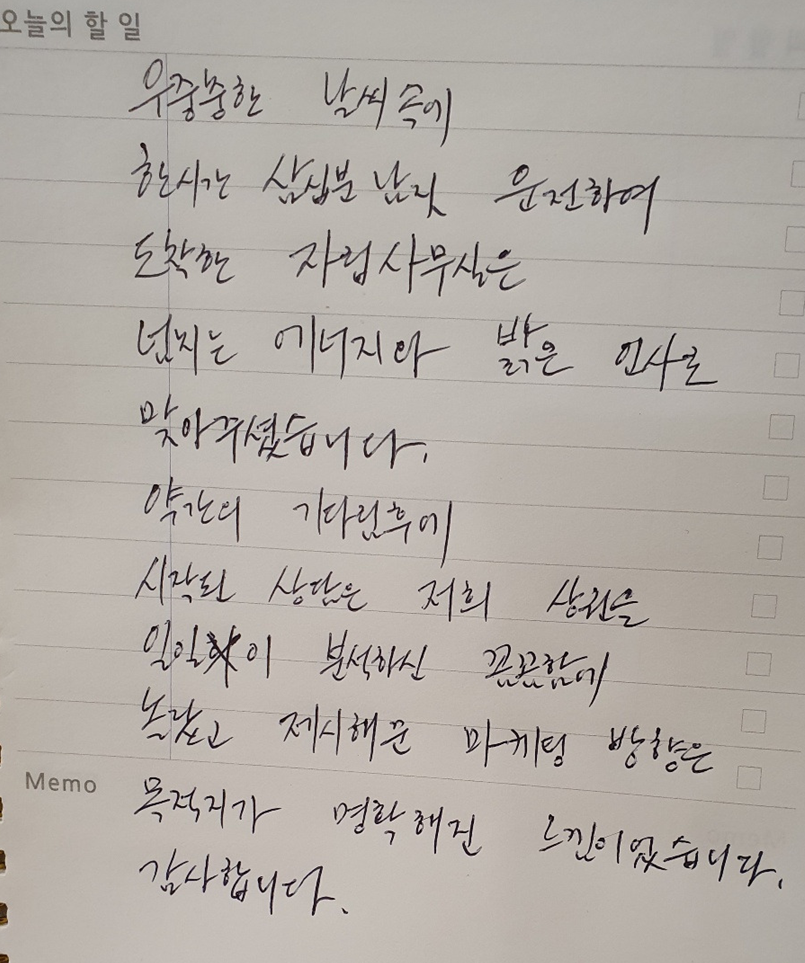 오늘의 할 일
우중충한 날씨속에
한시간 삼십분 남짓 운전하여
도착한 자립사무실은
넘치는 에너지와 밝은 인사로
맞아주셨습니다.
약간의 기다림후에
시작된 상담은 저희 상권을
일일이 분석하신 꼼꼼함에
놀랐고 제시해준 마케팅 방향은
Memo
목적지가 명확해진 느낌이었습니다.
감사합니다.